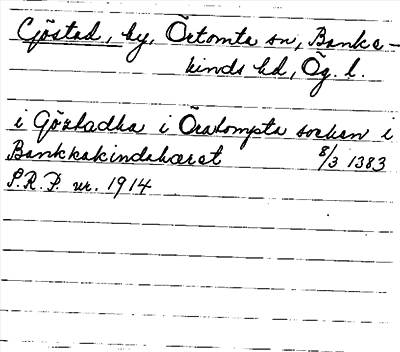 Göstad, by, Örtomta sn, Banke-
kinds hd, Ög. l.
i Gözstadha i Öratompta sochen i
Bankkakindahæret 8/3 1383
S.R.P. nr. 1914